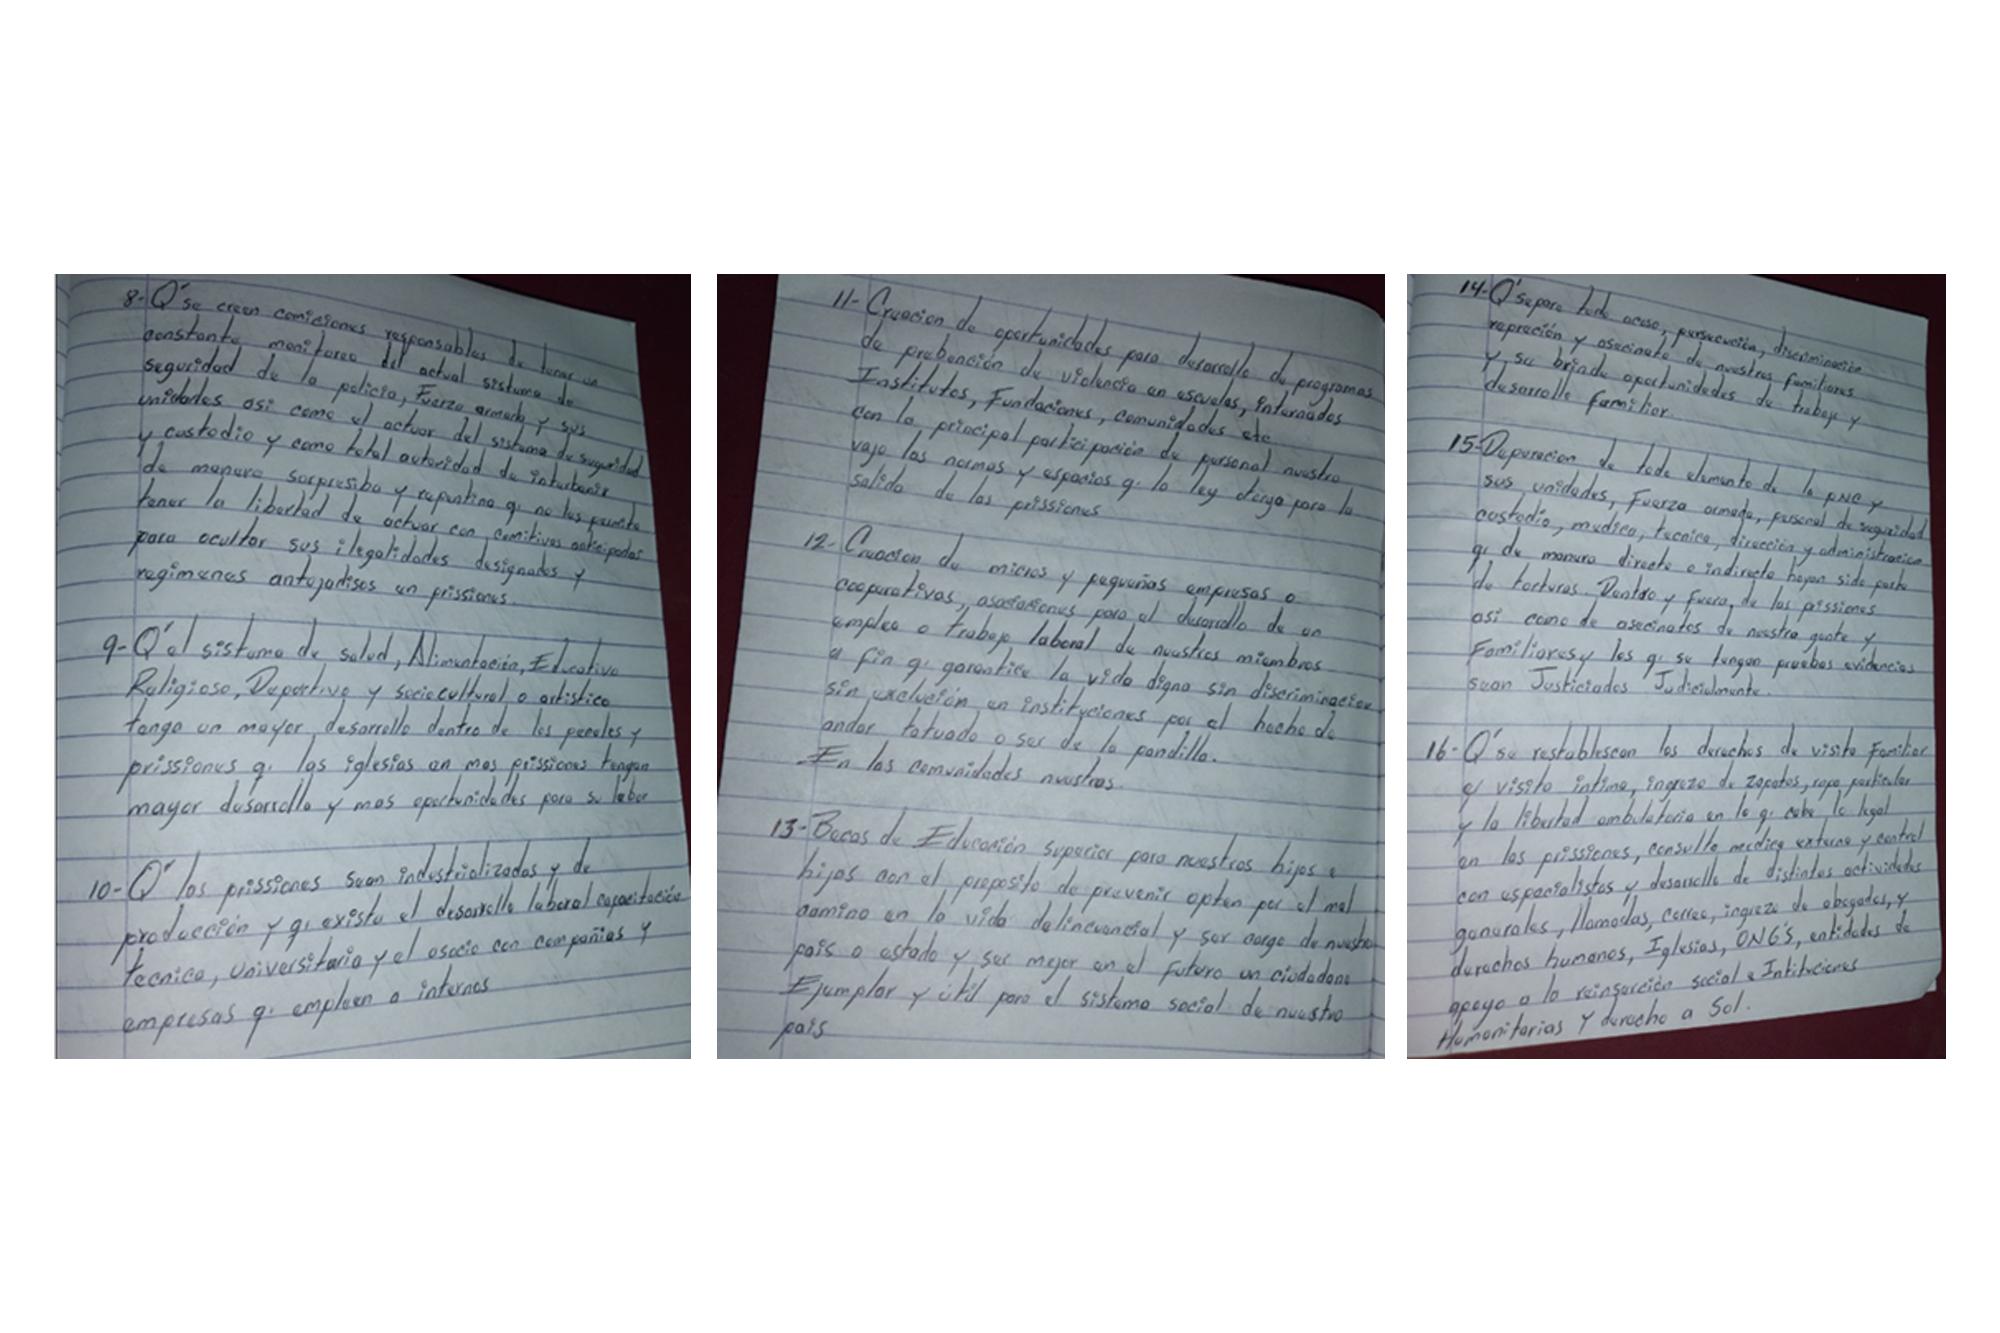 8- Q' se creen comiciones responsables de tener un
constante monitoreo del actual sistema de
seguridad de la policia, Fuerza armada y sus
unidades asi como el actuar del sistema de seguridad
y custodio y como total autoridad de interbenir
de manera sorpresiba y repentina q. no les permita
tener la libertad de actuar con comitivas anticipadas
para ocultar sus ilegalidades designados y
regimenes antojadisos en prissiones.
9- Q' el sistema de salud, Alimentación, Educativo
Religioso, Deportivo y sociocultural o artistico
tenga un mayor desarrollo dentro de los penales y
prissiones q. las iglesias en mas prissiones tengan
mayor desarrollo y mas oportunidades para su labor
10- Q' las prissiones sean industrializadas y de
producción y q. exista el desarrollo laboral capacitación
tecnica, universitaria y el asocio con compañias y
empresas q. empleen a internos
11- Creacion de oportunidades para desarrollo de programas
de prebención de violencia en escuelas, internados
Institutos, Fundaciones, comunidades etc
con la principal participación de personal nuestro
vajo las normas y espacios q. la ley otorga para la
salida de las prissiones
12- Creacion de micros y pequeñas empresas o
cooperativas, asociaciones para el desarrollo de un
empleo o trabajo laboral de nuestros miembros
a fin q. garantice la vida digna sin discriminacion
sin exclución en instituciones por el hecho de
andar tatuado o ser de la pandilla.
En las comunidades nuestras.
13- Becas de Educación superior para nuestros hijos e
hijas con el proposito de prevenir opten por el mal
camino en la vida delincuencial y ser carga de nuestro
pais o estado y ser mejor en el futuro un ciudadano
Ejemplar y útil para el sistema social de nuestro
pais
14- Q' se pare todo acoso, persecución, discriminación
repreción y asecinato de nuestros familiares
y se brinde oportunidades de trabajo y
desarrollo familiar.
15- Depuracion de todo elemento de la PNC y
sus unidades, Fuerza armada, personal de seguridad
custodio, medico, tecnico, dirección y administracion
q. de manera directa o indirecta hayan sido parte
de torturas. Dentro y fuera de las prissiones
asi como de asecinatos de nuestra gente y
Familiares y los q. se tengan pruebas evidencias
sean Justiciados Judicialmente.
16- Q' se restablescan los derechos de visita Familiar
y visita intima, ingrezo de zapatos, ropa particular
y la libertad ambulatoria en lo q. cabe lo legal
en las prissiones, consulta medica externa y control
con especialistas y desarrollo de distintas actividades
generales, llamadas, correo, ingrezo de abogados, y
derechos humanos, Iglesias, ONG'S, entidades de
apoyo a la reinserción social e Intituciones
Humanitarias y derecho a Sol.